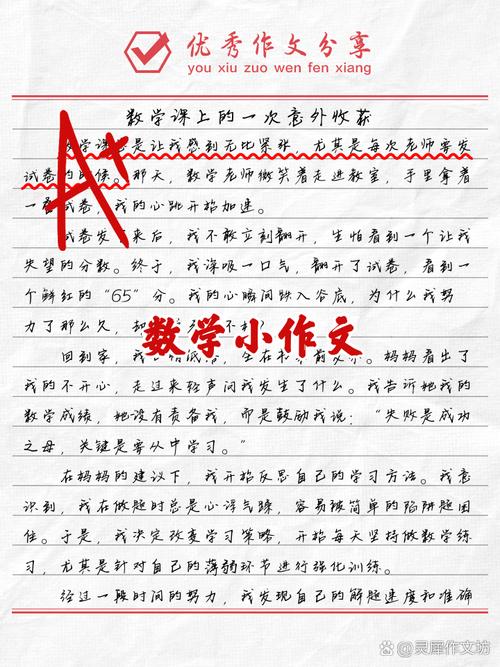 优秀作文分享
you xiu zuo wen fen xiang
数学课上的一次意外收获
学课是让我感到无比紧张，尤其是每次老师要发
试卷的时候。那天，数学老师微笑着走进教室，手里拿着
一试卷，我的心跳开始加速。
试卷发来后，我不敢立刻翻开，生怕看到一个让我
失望的分数。终于，我深吸一口气，翻开了试卷，看到一
个鲜红的“65”分。我的心瞬间跌入谷底，为什么我努
力了那么久，却
数学小作文
回到家，我低落，坐在。妈妈看出了
我的不开心，走过来轻声问我发生了什么。我告诉她我的
数学成绩，她没有责备我，而是鼓励我说：“失败是成功
之母，关键是要从中学习。”
在妈妈的建议下，我开始反思自己的学习方法。我意
识到，我在做题时总是心浮气躁，容易被简单的陷阱题困
住。于是，我决定改变学习策略，开始每天坚持做数学练
习，尤其是针对自己的薄弱环节进行强化训练。
经过一段时间的努力，我发现自己的解题速度和准确
A+
@灵犀作文坊